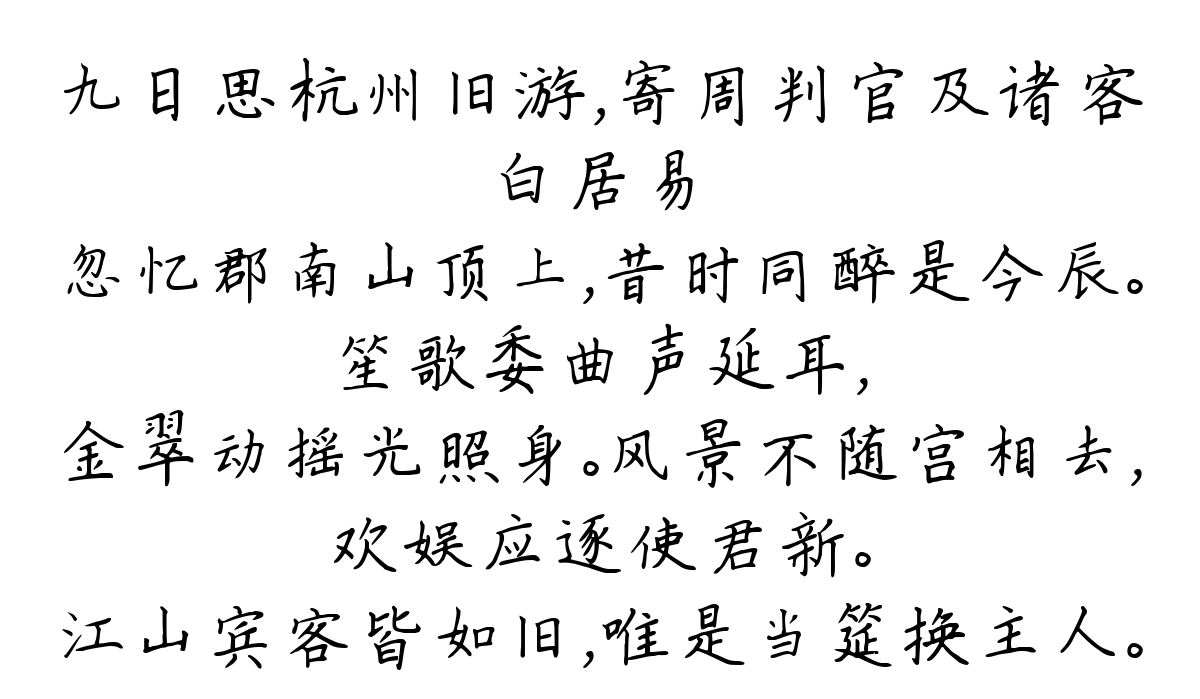 九日思杭州旧游,寄周判官及诸客
白居易
忽忆郡南山顶上,昔时同醉是今辰。
笙歌委曲声延耳,
金翠动摇光照身。风景不随宫相去,
欢娱应逐使君新。
江山宾客皆如旧,唯是当筵换主人。